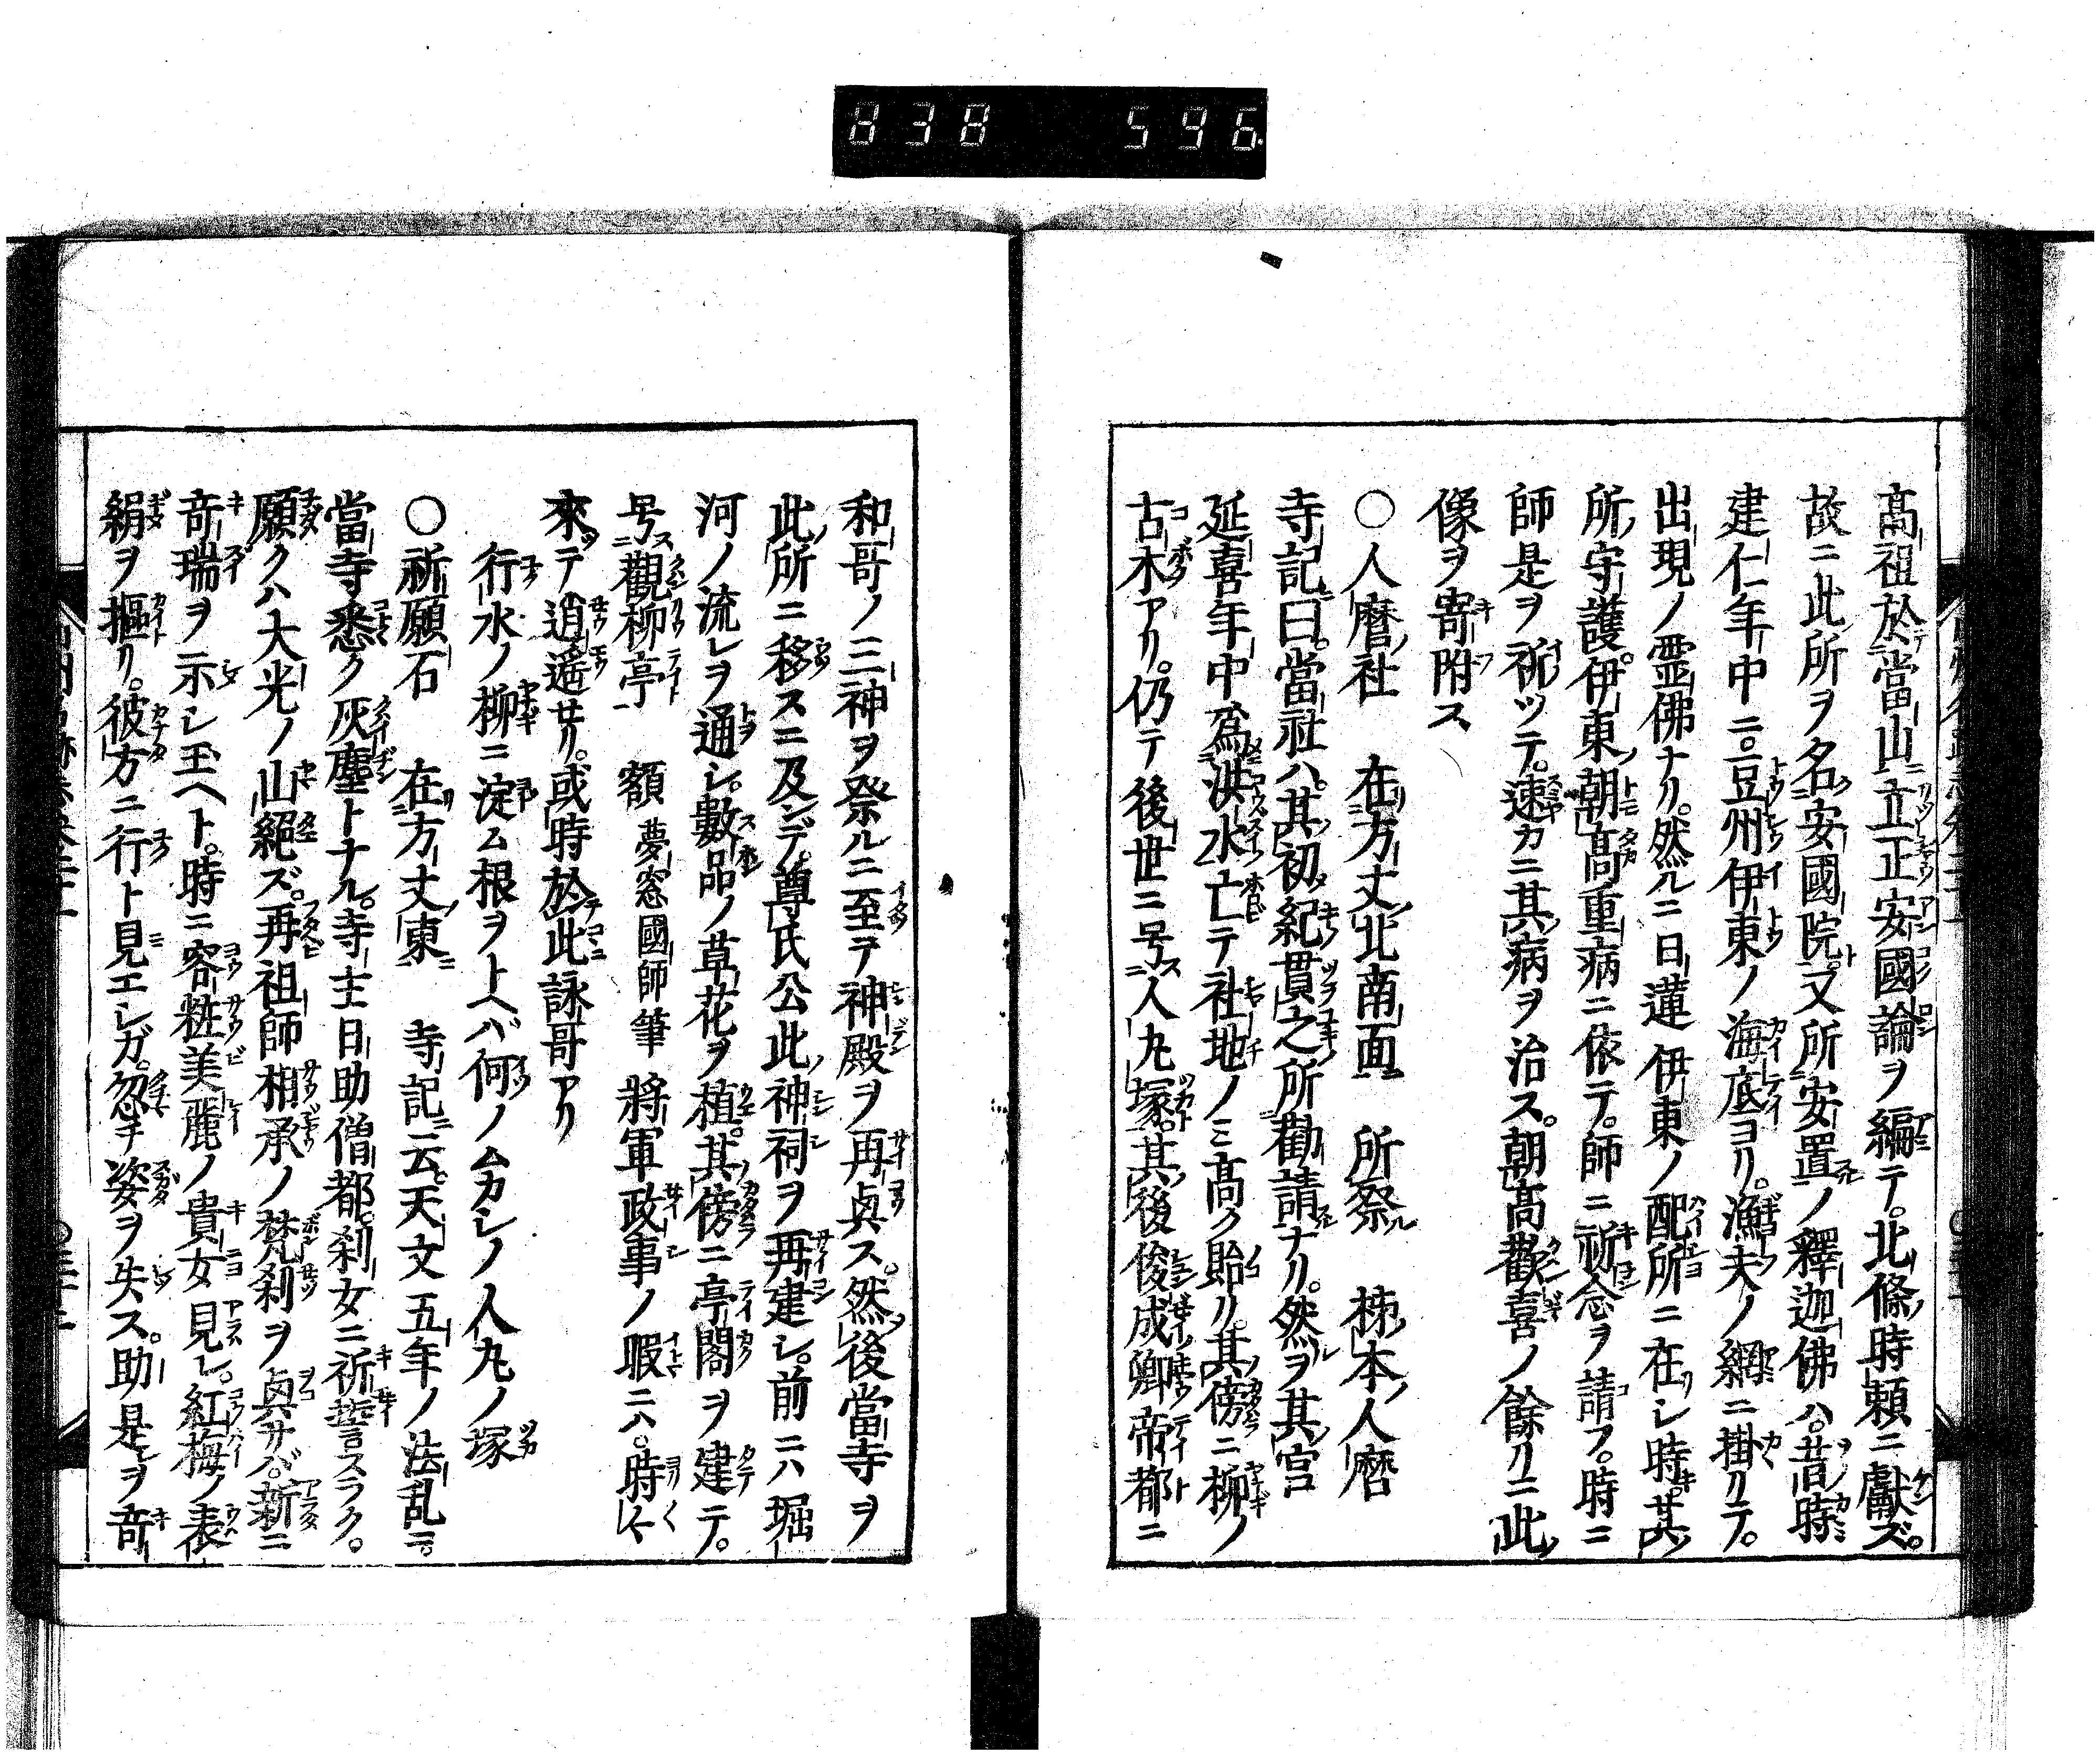 838 596
高祖於當山立正安國論ヲ編テ。北條時頼ニ獻ズ。
故ニ此所ヲ名安國院。又所安置ノ釋迦佛ハ。昔時
建仁年中ニ。豆州伊東ノ海底ヨリ。漁夫ノ網ニ掛リテ。
出現ノ霊佛ナリ。然ルニ日蓮伊東ノ配所ニ在シ時。其
所守護。伊東朝高重病ニ依テ。師ニ祈念ヲ請フ。時ニ
師是ヲ祈ツテ。速カニ其病ヲ治ス。朝高歡喜ノ餘リニ此
像ヲ寄附ス
○人麿社 在方丈北南面 所祭 柹本人麿
寺記曰。當社ハ。其初紀貫之所勸請ナリ。然ヲ其宮
延喜年中為洪水亡テ社地ノミ高ク貽リ。其傍ニ柳ノ
古木アリ。仍テ後世ニ号人丸塚。其後俊成卿帝都ニ
和哥ノ三神ヲ祭ルニ至テ神殿ヲ再興ス。然後當寺ヲ
此所ニ移スニ及デ。尊氏公此神祠ヲ再建シ。前ニハ堀
河ノ流レヲ通シ。數品ノ草花ヲ植。其傍ニ亭閣ヲ建テ。
号觀柳亭 額夢窓國師筆 將軍政事ノ暇ニハ。時〱
來テ逍遙セリ。或時於此詠哥アリ
行水ノ柳ニ淀ム根ヲトヘバ何ノムカシノ人丸ノ塚
○祈願石 在方丈東 寺記云。天文五年ノ法乱ニ。
當寺悉ク灰塵トナル。寺主日助僧都。刹女ニ祈誓スラク。
願クハ大光ノ山絕ズ。再祖師相承ノ梵刹ヲ興サバ。新ニ
竒瑞ヲ示シ玉ヘト。時ニ容粧美麗ノ貴女見レ。紅梅ノ表
絹ヲ摳リ。彼方ニ行ト見エシガ。忽チ姿ヲ失ス。助是ヲ竒